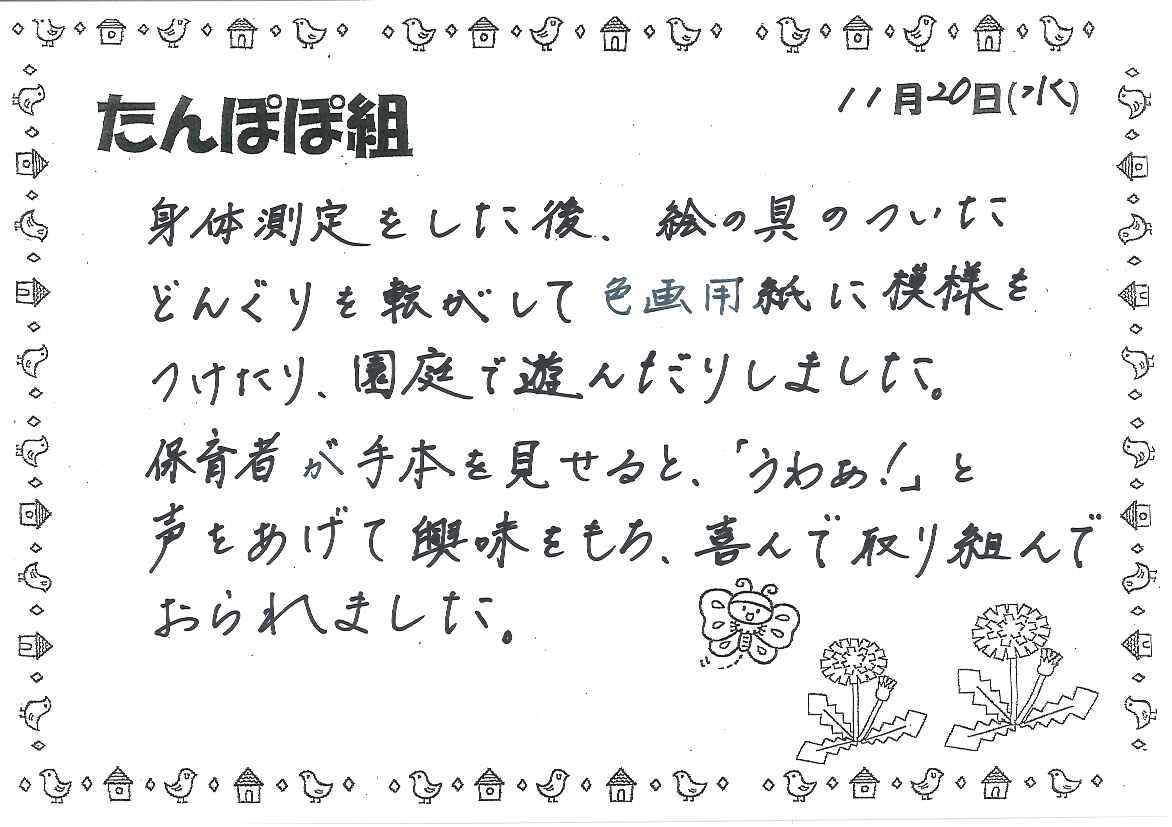 たんぽぽ組
11月20日(水)
身体測定をした後、絵の具のついた
どんぐりを転がして色画用紙に模様を
つけたり、園庭で遊んだりしました。
保育者が手本を見せると、「うわぁ!」と
声をあげて興味をもち、喜んで取り組んで
おられました。